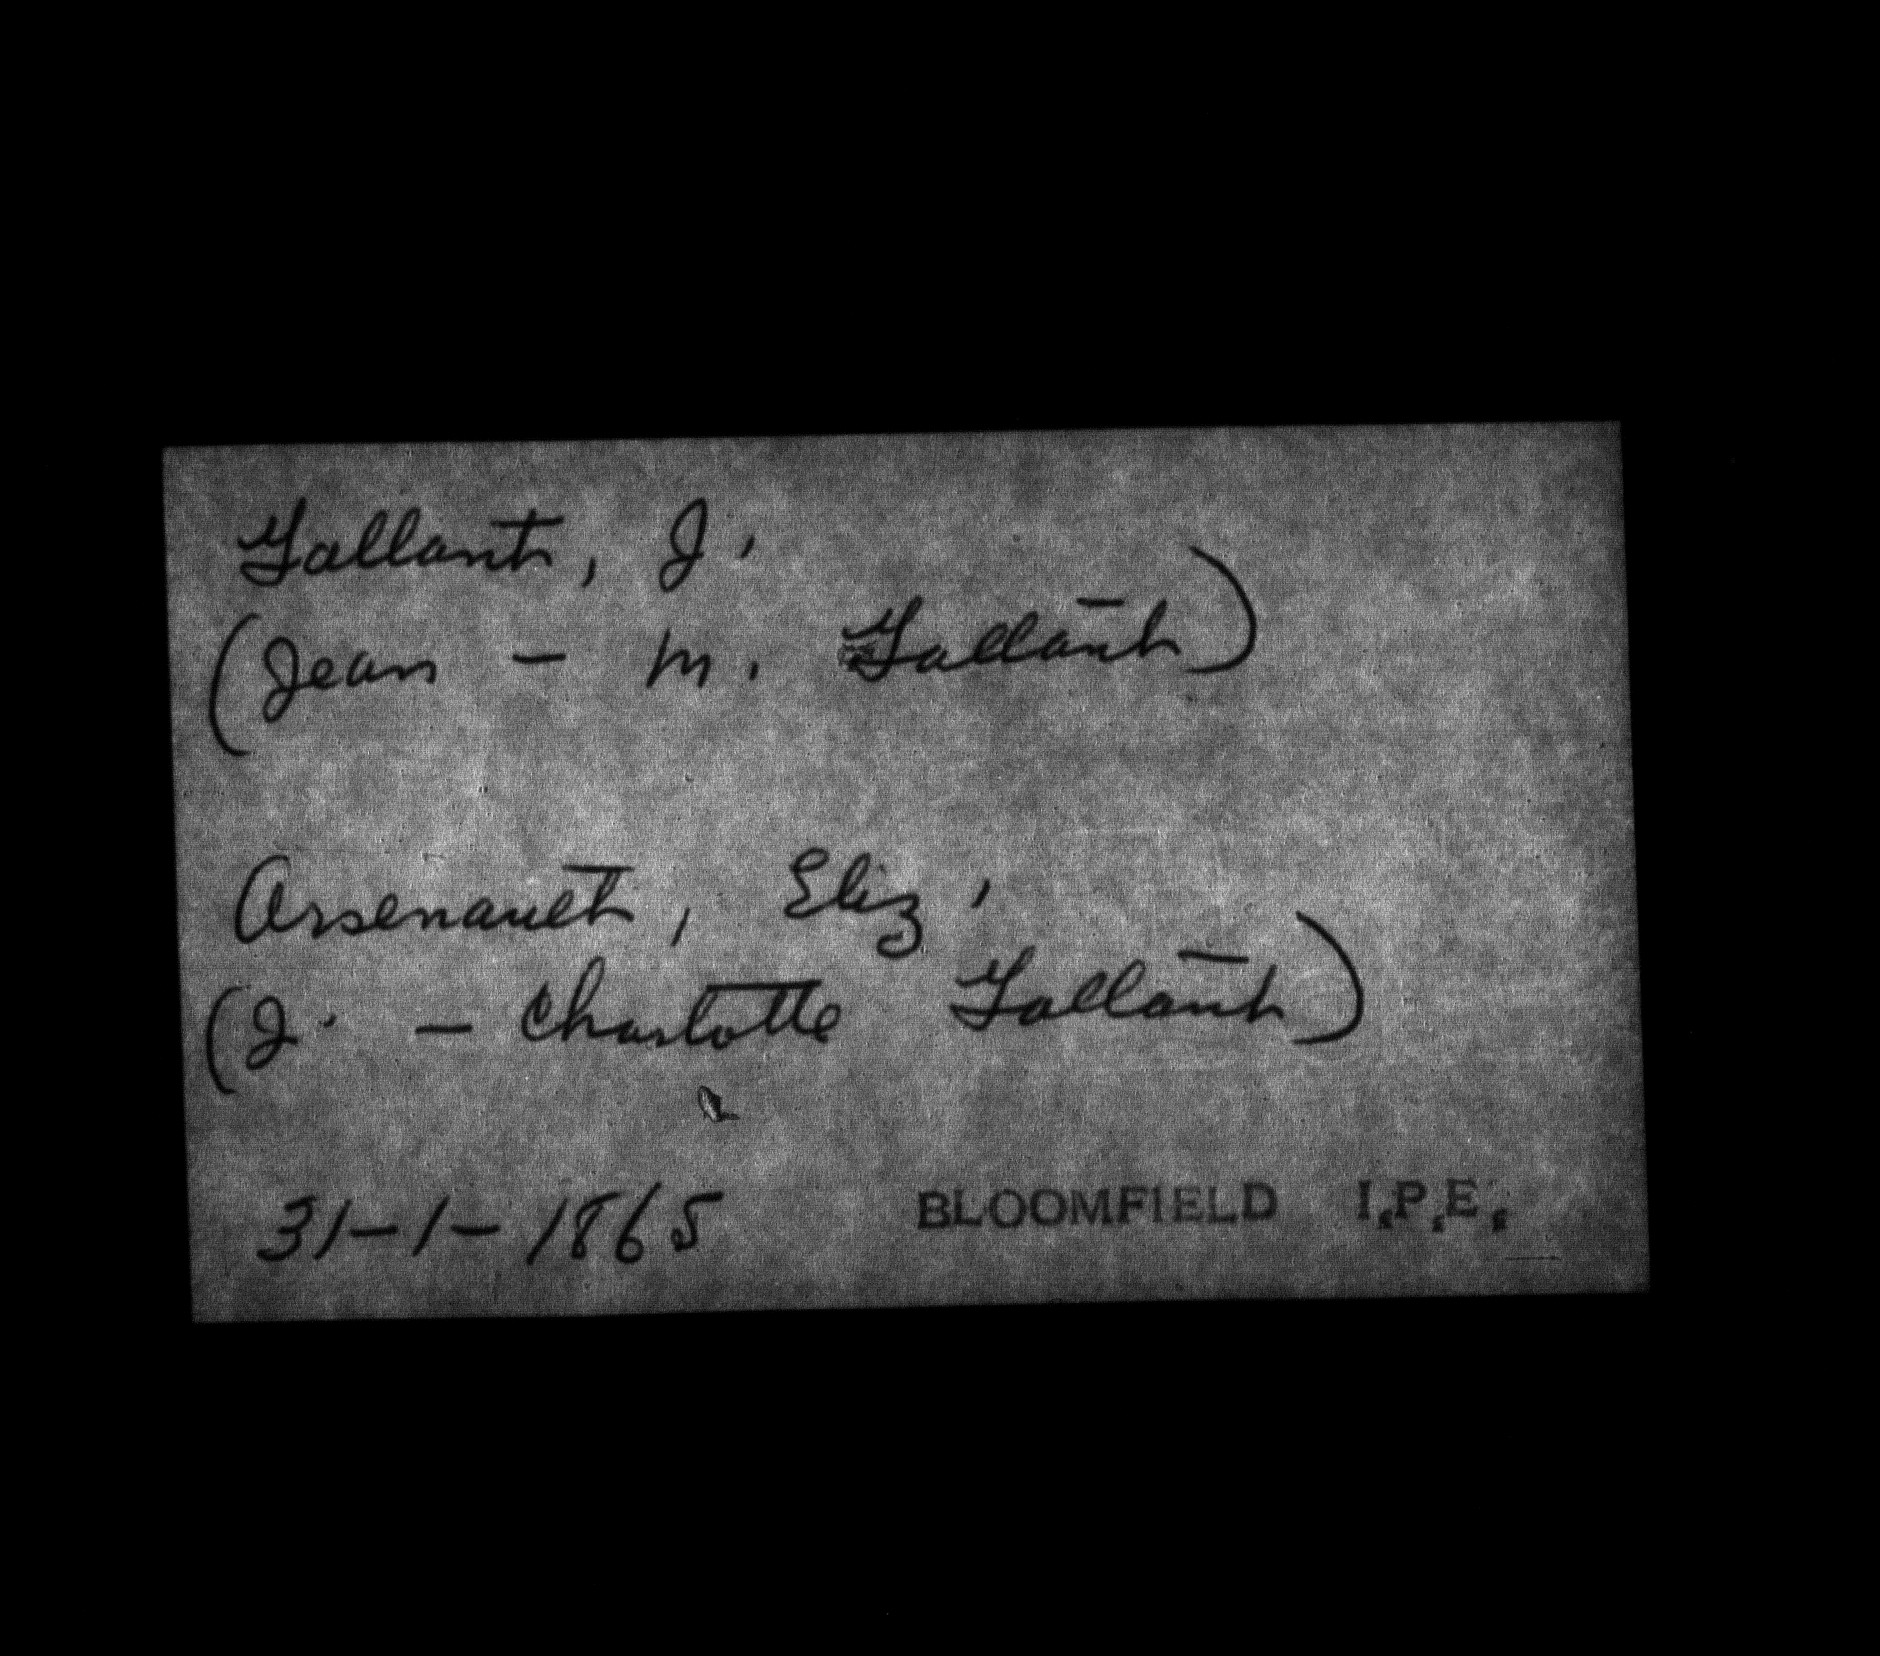 Gallant, J.
(Jean - M. Gallant)
Arsenault, Eliz.
(J. - Charlotte Gallant)
31-1-1865 BLOOMFIELD I.P.E.